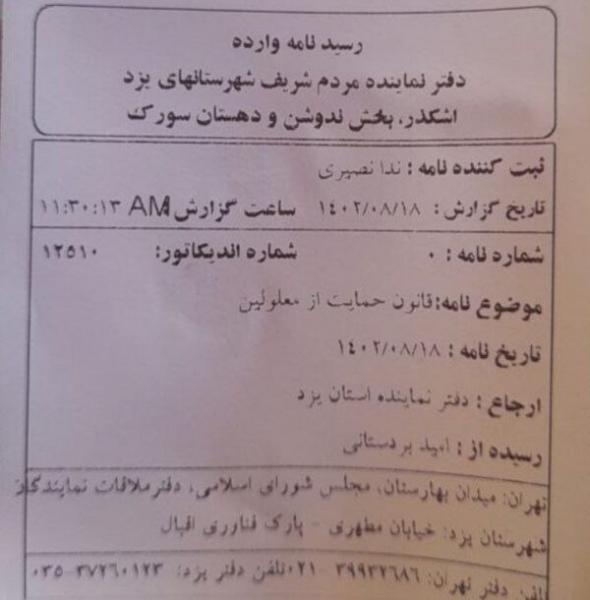 رسید نامه وارده
دفتر نماینده مردم شریف شهرستانهای یزد
اشکذر، بخش ندوشن و دهستان سورک
ثبت کننده نامه : ندا نصیری
تاریخ گزارش : ۱۴۰۲/۰۸/۱۸ ساعت گزارش: ۱۱:۳۰:۱۳ AM
شماره نامه : ۰ شماره اندیکاتور: ۱۲۵۱۰
موضوع نامه: قانون حمایت از معلولین
تاریخ نامه : ۱۴۰۲/۰۸/۱۸
ارجاع : دفتر نماینده استان یزد
رسیده از : امید بردستانی
تهران: میدان بهارستان، مجلس شورای اسلامی، دفتر ملاقات نمایندگان
شهرستان یزد: خیابان مطهری - پارک فناوری اقبال
تلفن دفتر تهران: ۳۹۹۳۲۶۸۶-۰۲۱ تلفن دفتر یزد: ۳۷۲۶۰۱۲۳-۰۳۵